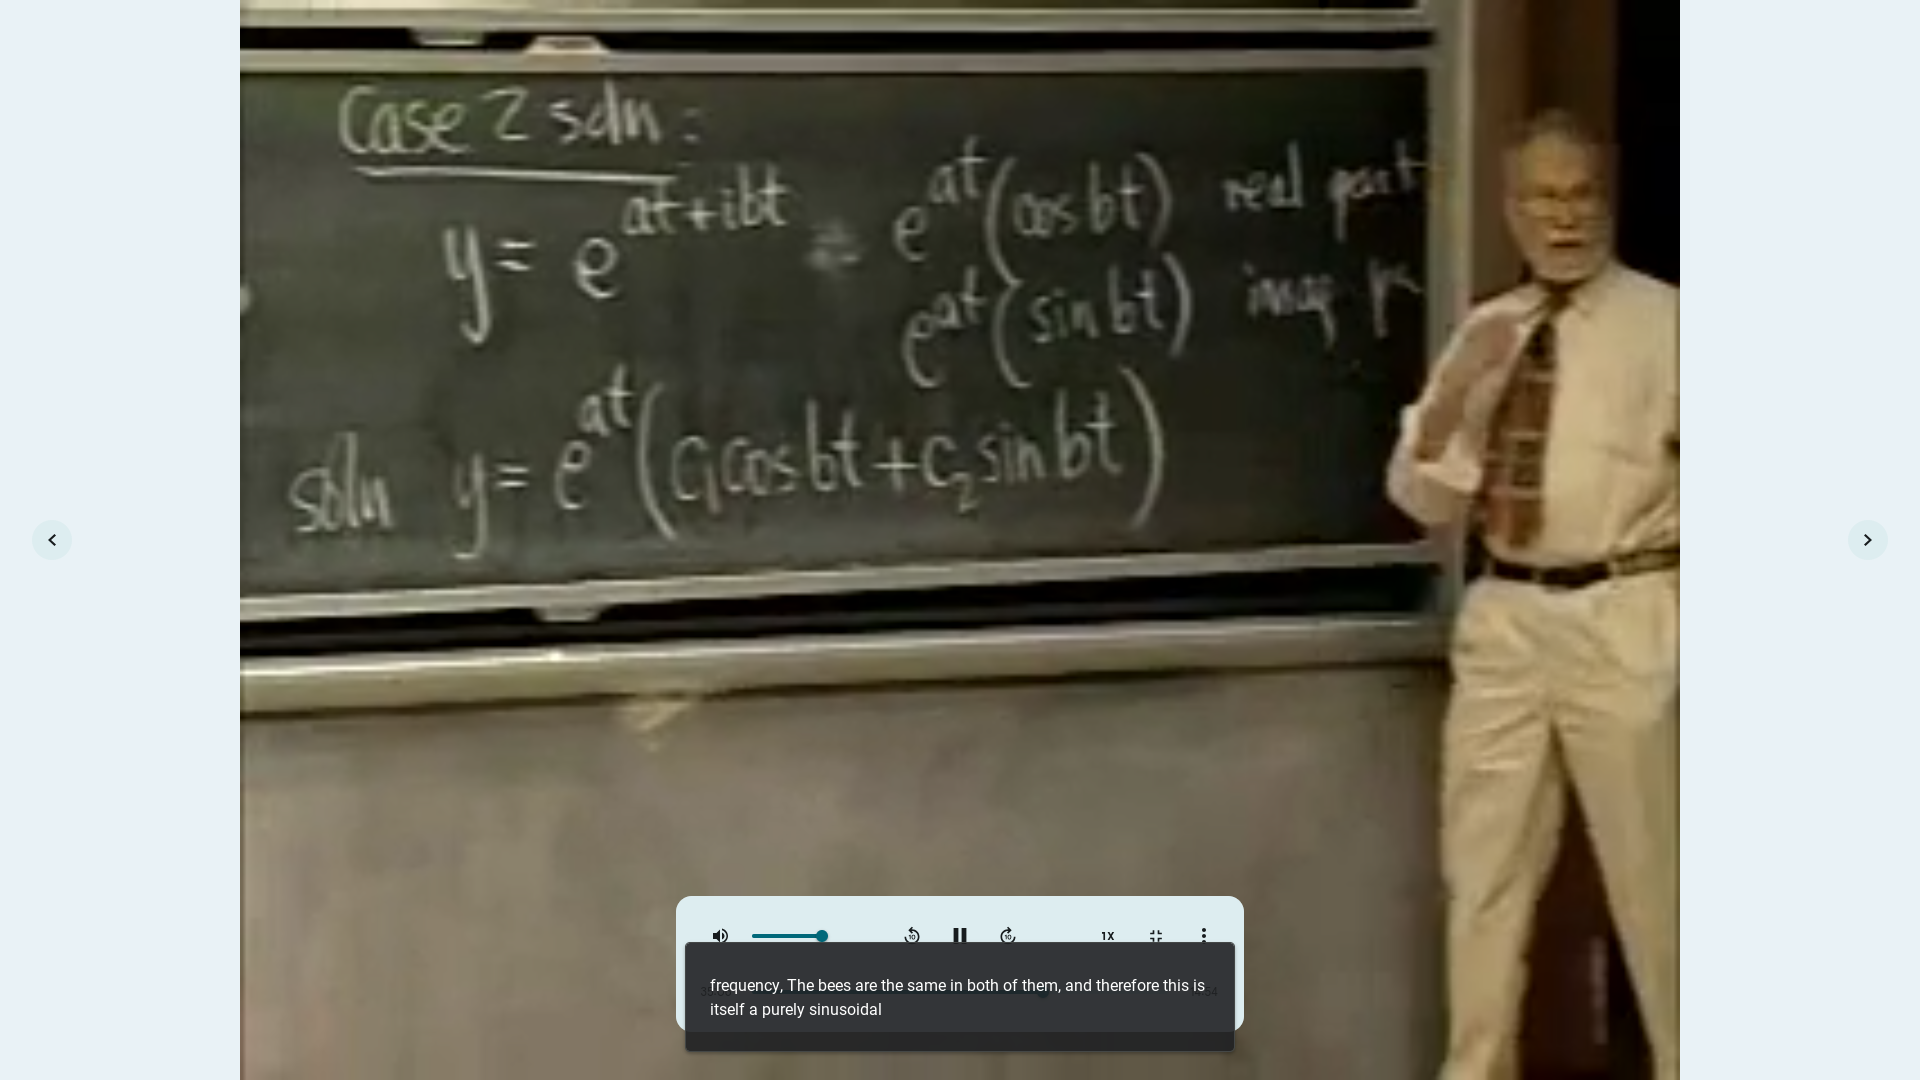 Case 2 soln:
y = e^{at+ibt} = e^{at}(cos bt) real part
e^{at}(sin bt) imag
soln y = e^{at}(c₁cos bt + c₂ sin bt)
1X
frequency, The bees are the same in both of them, and therefore this is
itself a purely sinusoidal